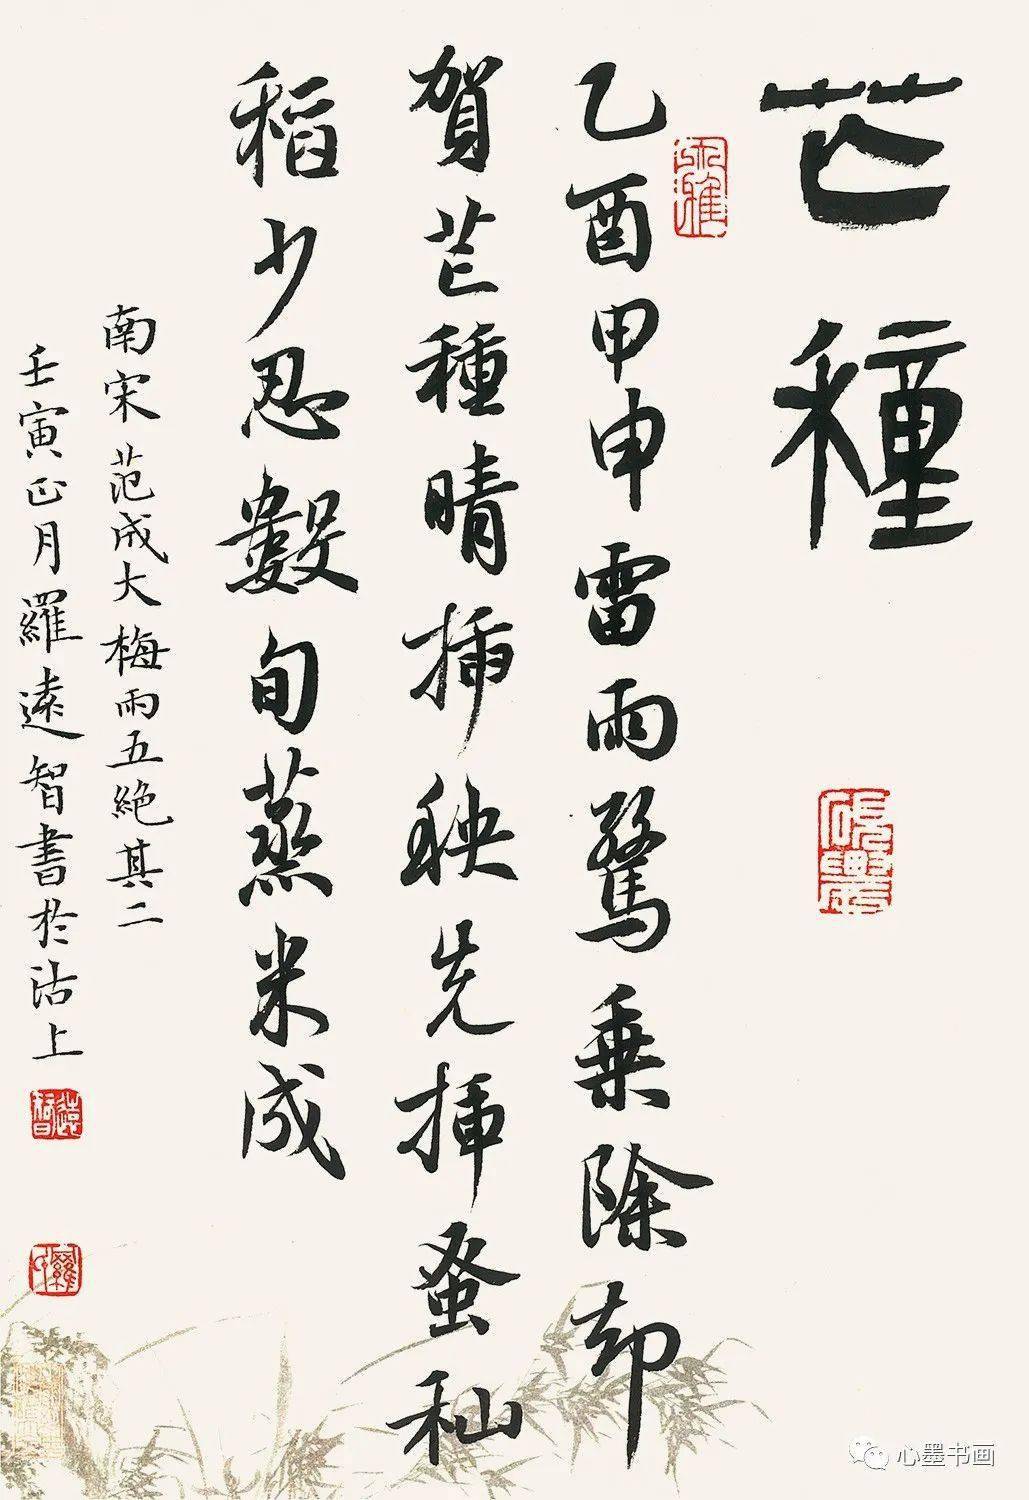 芒種
乙酉甲申雷雨驚乘除却
賀芒種晴插秧先插蚤秈
稻少忍數旬蒸米成
南宋范成大梅雨五絕其二
壬寅正月羅遠智書於沽上
遠智
心墨书画